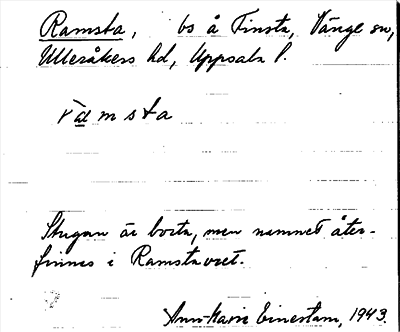 Ramsta, bs å Finsta, Vänge sn,
Ulleråkers hd, Uppsala l.
ramsta
Stugan är borta, men namnet åter-
finnes i Ramstavret.
Ann-Marie Einerstam, 1943.